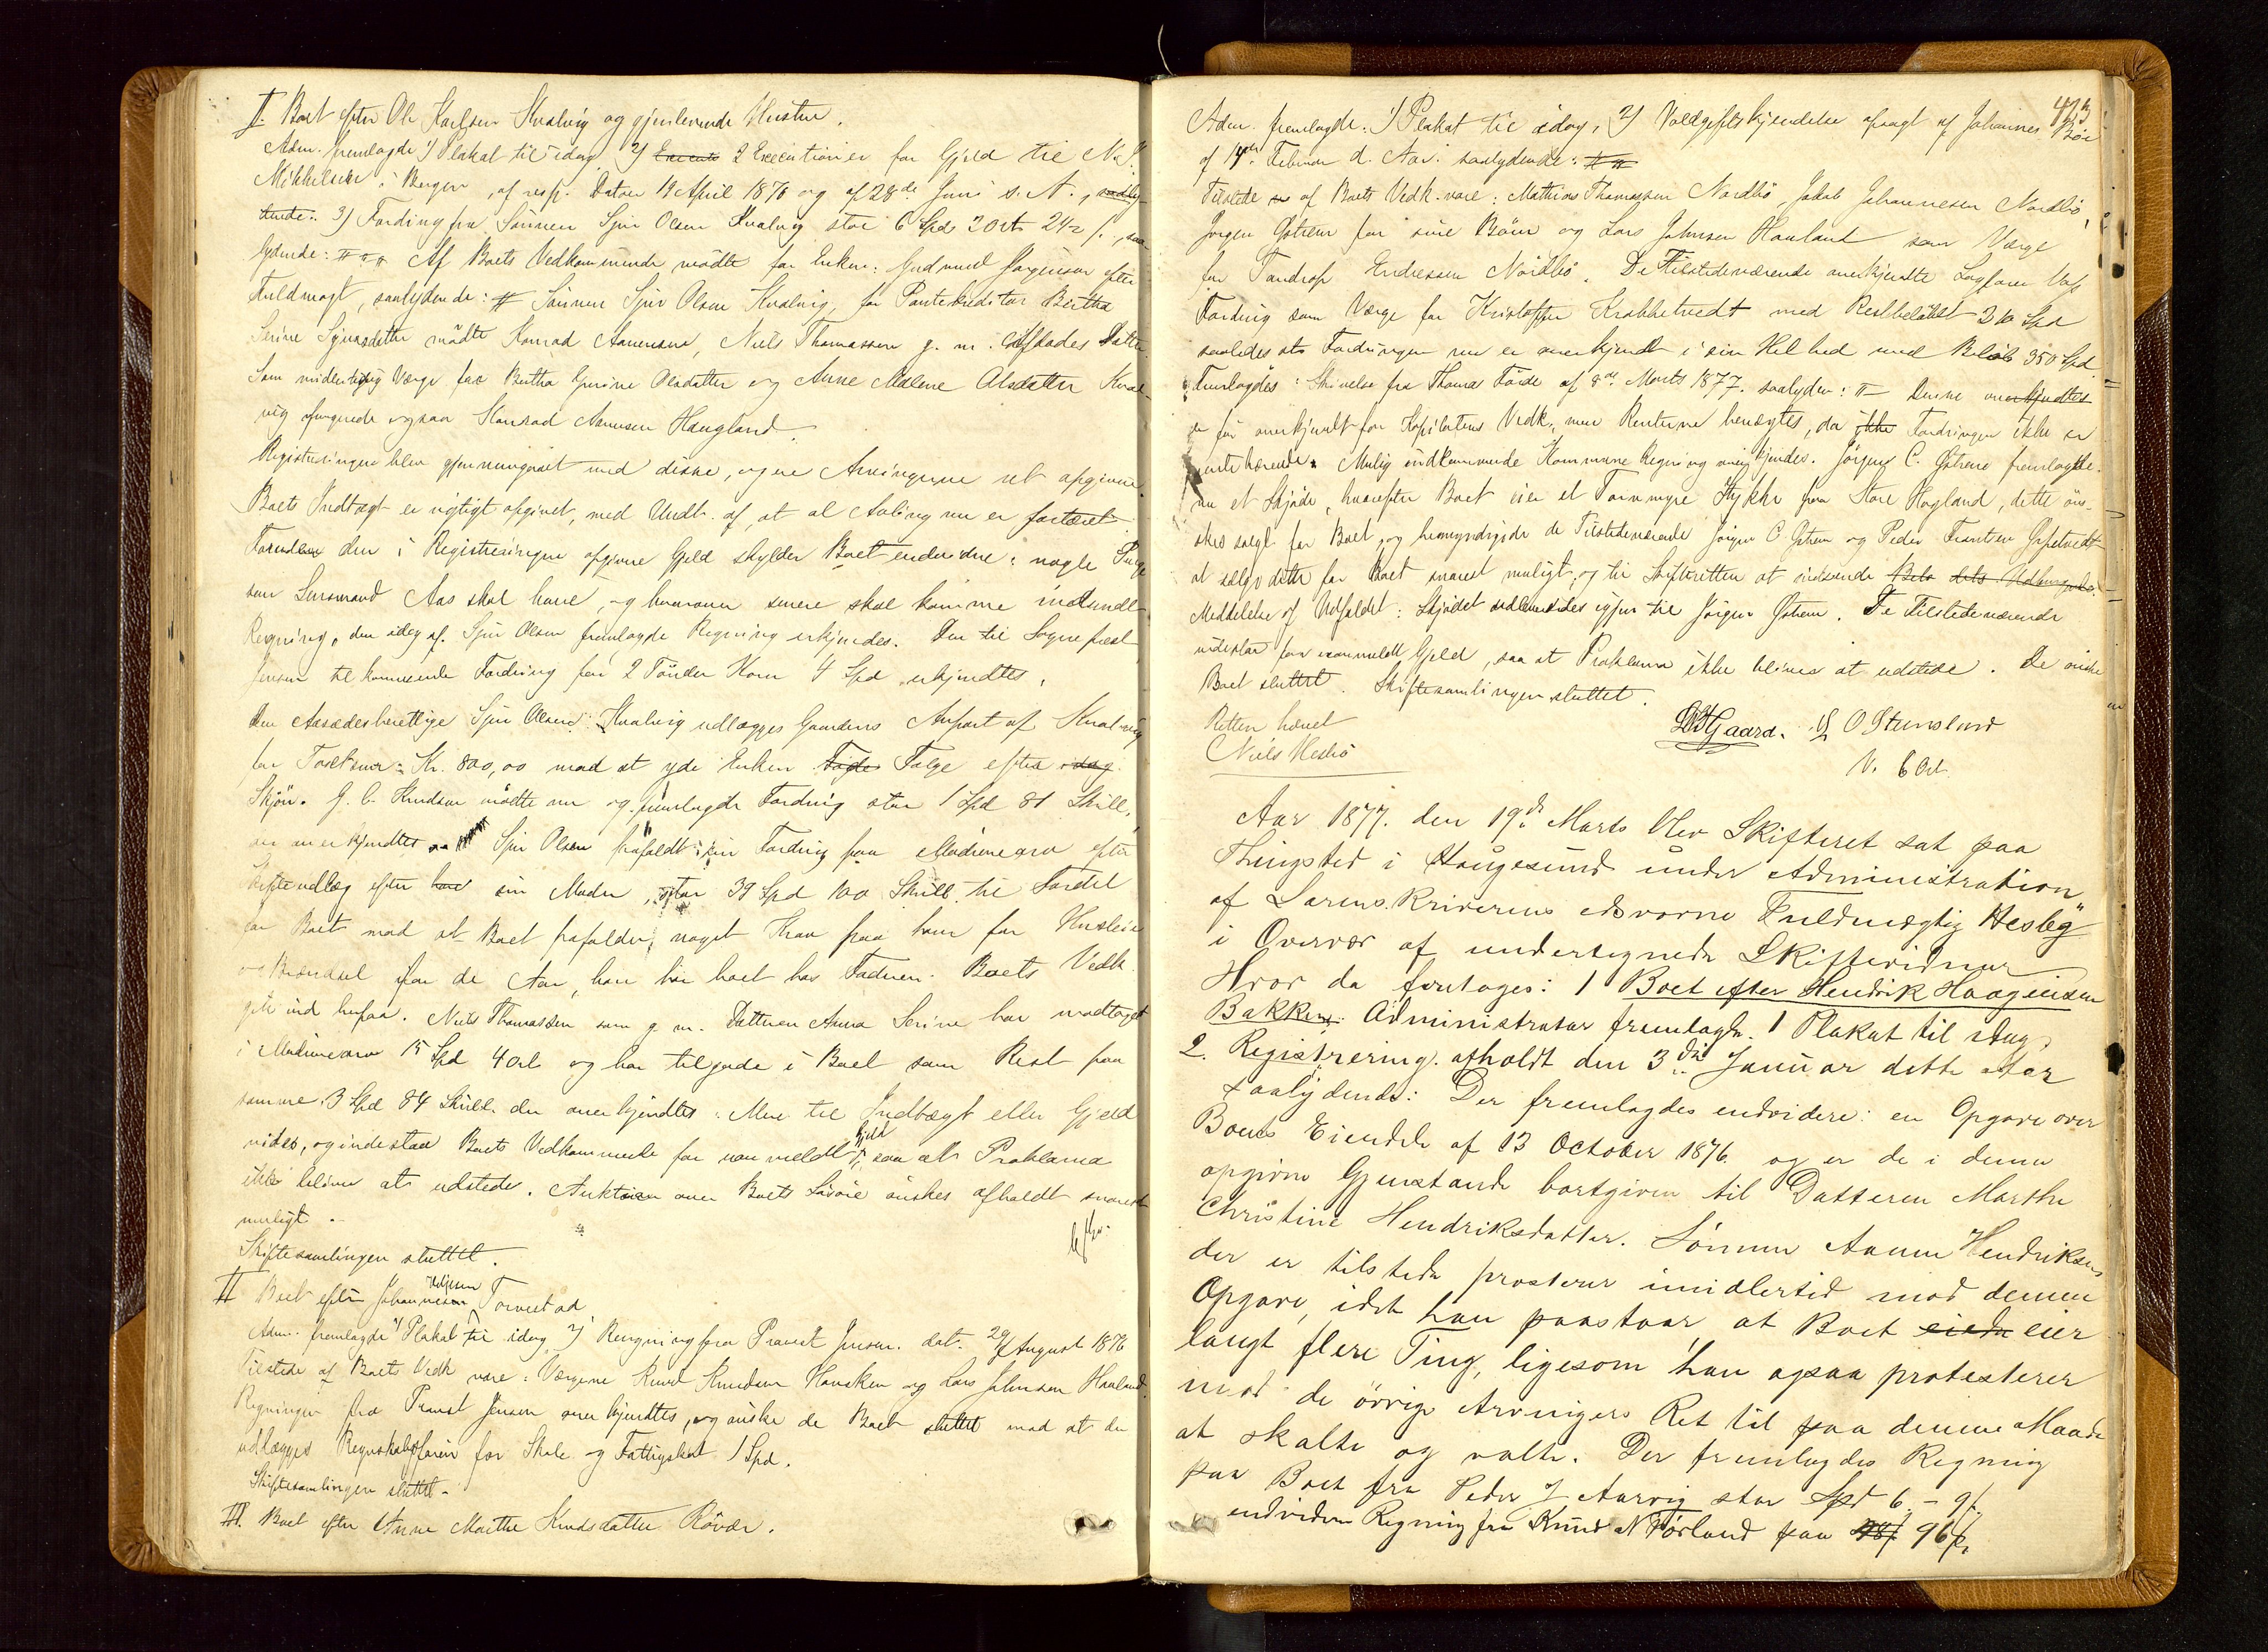 I. Boet efter Ole Karlsen Kvalvig og gjenlevende Hustru.
Adm. fremlagde 1) Plakat til idag 2) 2 Executioner for Gjeld til N. J.
Mikkelsen i Bergen, af resp. Datoer 19 April 1876 og af 28de Juni s. A.,
3) Fordring fra Sønnen Sjur Olsen Kvalvig stor 6 Spd 2 Ort 24 ß., saa-
lydende: Af Boets Vedkommende mødte for Enken: Gudmund Jørgensen efter
Fuldmagt, saalydende: Sønnen Sjur Olsen Kvalvig, for Pantekreditor Bertha
Serine mødte Konrad Aanensen, Niels Thomassen g. m. Afdødes Datter.
Som midlertidig Værge for Bertha Gurine Olsdatter og Anne Malene Olsdatter Kval-
vig fungerede ogsaa Konrad Aanensen Haugland.
Registreringen blev gjennemgaaet med disse, og ere Arvingerne ret opgivne.
Boets Indtægt er rigtigt opgivet, med Undt. af, at al Avling nu er fortæret
Foruden den i Registreringen opgivne Gjeld skylder Boet endvidere: nogle Penge
som Lensmand Aas skal have, og hvorom senere skal komme indsendt
Regning, den idag af Sjur Olsen fremlagde Regning erkjendes. Den til Sogneprest
Jensen tilkommende Fordring for 2 Tønder Korn 4 Spd erkjendtes.
Den Aasædesberettige Sjur Olsen Kvalvig udlægges Gaardens Anpart af Kvalvig
for Taxtsum: Kr. 800,00 mod at yde Enken Føderaad efter
Skjøn. G. C. Knudsen mødte nu og fremlagde Fordring stor 1 Spd 81 Skill.,
som anerkjendtes Sjur Olsen frafaldt sin Fordring paa Mødrenearv efter
Skifteudlæg efter sin Moder, stor 39 Spd 100 Skill. til Fordel
for Boet mod at Boet frafalder noget Krav paa ham for Husleie
og Brændsel for de Aar, han har boet hos Faderen. Boets Vedk.
gik ind herpaa. Niels Thomassen som g. m. Datteren Anna Serine har modtaget
i Mødrenearv 15 Spd 4 Ort og har tilgode i Boet som Rest paa
samme 3 Spd 84 Skill. der anerkjendtes. Mere til Indtægt eller Gjeld
vides, og indestaa Boets Vedkommende for uanmeldt Gjeld, saa at Proklama
ikke bliver at udstede. Auktion over Boets Løsøre ønskes afholdt snarest
muligt.
Skiftesamlingen sluttet.
II Boet efter Johannes Torvestad
Adm. fremlagde 1) Plakat til idag 2) Regning fra Provst Jensen dat. 29 August 1876
Tilstede af Boets Vedk. vare: Værgene Knud Knudsen Hauske og Lars Johnsen Haaland.
Regningen fra Provst Jensen anerkjendtes, og ønske de Boet sluttet mod at der
udlægges Regnskabsfører for Skole og Fattigskat 1 Spd.
Skiftesamlingen sluttet.
III. Boet efter Anne Marthe Knudsdatter Røvær.
473
Adm. fremlagde: 1) Plakat til idag, 2) Voldgiftskjendelse afsagt af Johannes Bøe
af 14de Februar d. Aar. saalydende:
Tilstede af Boets Vedk. vare: Mathias Thomassen Nordbø, Jakob Johannesen Nordbø,
Jørgen Østrem for sine Børn og Lars Johnsen Haaland som Værge
for Endressen Nordbø. De Tilstedeværende anerkjendte
Fordring som Værge for Kristoffer Krabbetvedt med Restbeløbet 310 Spd
saaledes at Fordringen nu er anerkjendt i sin Helhed med Beløb 350 Spd.
Fremlagdes: Skrivelse fra Thomas Førde af 8de Marts 1877. saalyden: Denne
er for anerkjendt for Kapitalens Vedk., men Renterne benægtes, da Fordringen ikke er
rentebærende. Mulig indkommende Kommune Regning anerkjendes. Jørgen C. Østrem fremlagde
nu et Skjøde, hvorefter Boet eier et Torvmyre Stykke fra Store Hogland, dette øn-
skes solgt for Boet, og bemyndigede de Tilstedeværende Jørgen C Østrem og Peder Frantsen
at sælge dette for Boet snarest muligt, og til Skifteretten at indsende
Meddelelse af Udfaldet. Skjødet igjen til Jørgen Østrem. De Tilstedeværende
indestaa for uanmeldt Gjeld, saa at Proklama ikke bliver at udstede. De ønske
Boet sluttet. Skiftesamlingen sluttet.
Retten hævet
Niels Hesbø
O Stensland
V. 6 Ort.
Aar 1877. den 19de Marts blev Skifteret sat paa
Thingsted i Haugesund under Administration
af Sorenskriverens edsvorne Fuldmægtig Hesbø
i Overvær af undertegnede Skiftevidner
Hvor da foretages: 1 Boet efter Hendrik Haagensen
Bakken. Administrator fremlagde. 1 Plakat til idag,
2. Registrering. afholdt den 3die Januar dette Aar
saalydende: Der fremlagdes endvidere: en Opgave over
Boets Eiendele af 13 October 1876 og er de i denne
opgivne Gjenstande bortgiven til Datteren Marthe
Christine Hendriksdatter. Sønnen Aanen Hendriksen
der er tilstede protesterer imidlertid mod denne
Opgave, idet han paastaar, at Boet eiede eier
langt flere Ting, ligesom han ogsaa protesterer
mod de øvrige Arvingers Ret til paa denne Maade
at skalte og valte. Der fremlagdes Regning
paa Boet fra Peder J Aarvig stor Spd 6 - 9 ß.
endvidere Regning fra Knud N Førland paa 98ß 96ß.